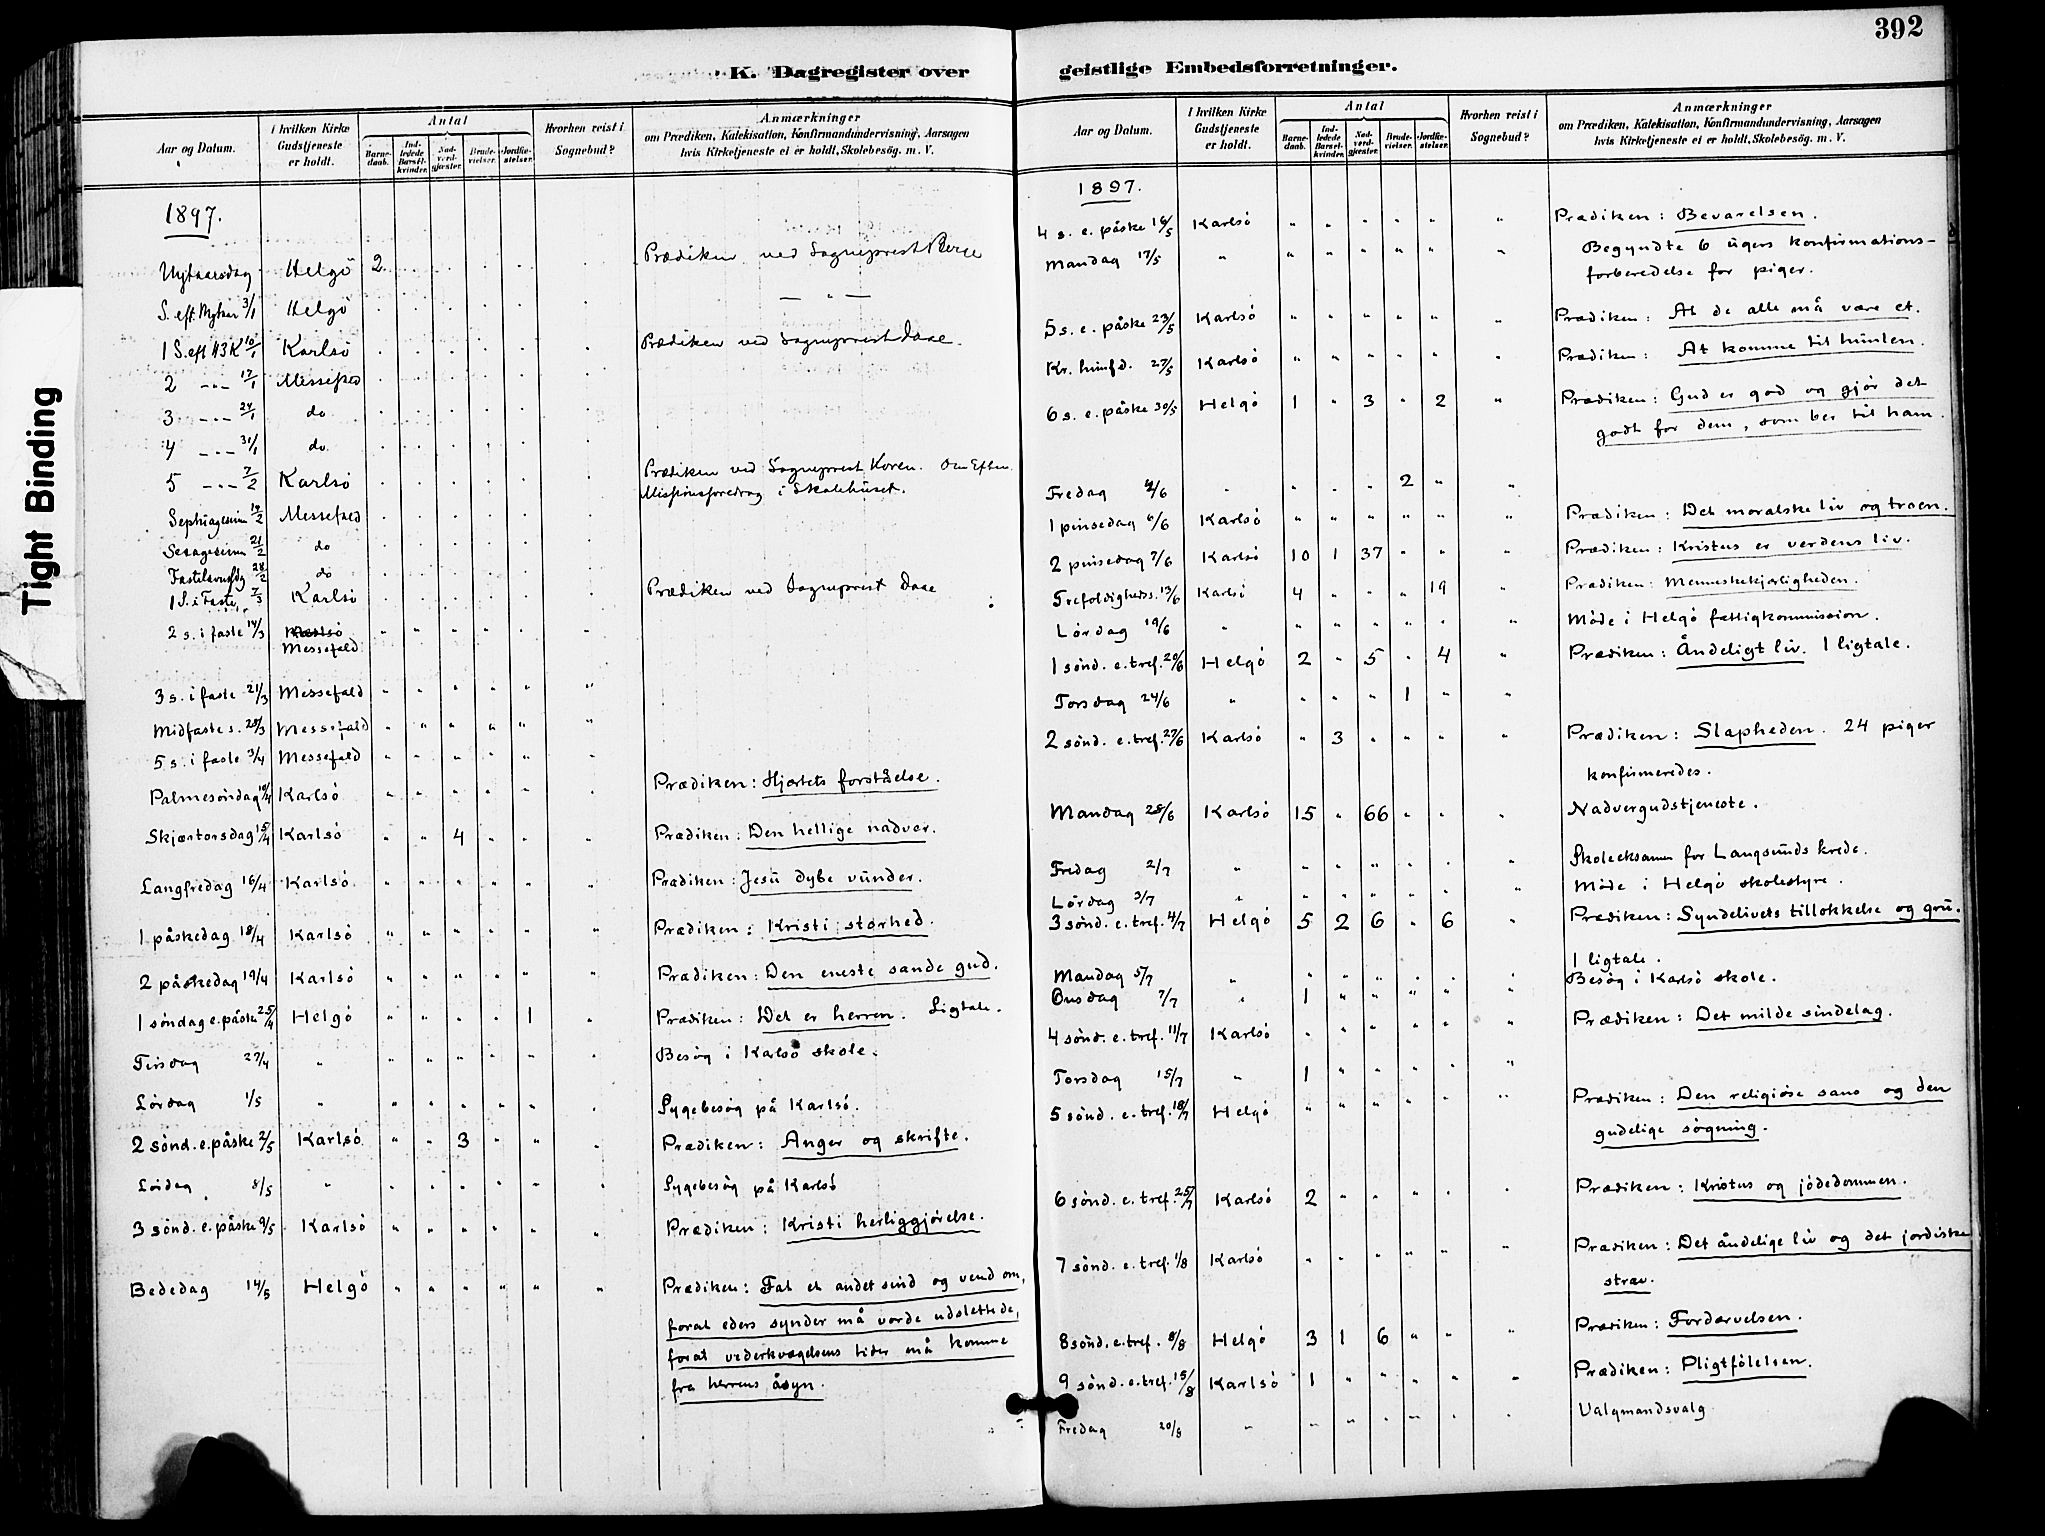 392
K. Dagregister over geistlige Embedsforretninger.
Aar og Datum. | I hvilken Kirke Gudstjeneste er holdt. | Antal | Barnedaab. | Indledede Barselkvinder. | Nadverdgjester. | Brudevielser. | Jordfæstelser. | Hvorhen reist i Sognebud? | Anmærkninger om Prædiken, Katekisation, Konfirmandundervisning, Aarsagen hvis Kirketjeneste ei er holdt, Skolebesøg. m. V.
1897.
Nytaarsdag Helgö 2 Prædiken ved Sogneprest Berge
S. eft. Nytaar 3/1 Helgö — " —
1 S. eft H3K 10/1 Karlsö Prædiken ved Sogneprest Daae.
2 -"- 17/1 Messefald
3 -"- 24/1 do
4 -"- 31/1 do
5 -"- 7/2 Karlsö Prædiken ved Sogneprest Koren. Om Efterm.
Missionsforedrag i Skolehuset.
Septuagesima 14/2 Messefald
Sexagesima 21/2 do
Fastelavnsdg 28/2 do
1 S. i Faste 7/3 Karlsö Prædiken ved Sogneprest Daae
2 s. i faste 14/3 Karlsö
Messefald
3 s. i faste 21/3 Messefald " " " " " "
Midfastes. 28/3 Messefald " " " " " "
5 s. i faste 3/4 Messefald " " " " " "
Palmesöndag 10/4 Karlsö " " " " " " Prædiken: Hjertets forståelse.
Skjærtorsdag 15/4 Karlsö " " 4 " " " Prædiken: Den hellige nadver.
Langfredag 16/4 Karlsö " " " " " " Prædiken: Jesu dybe vunder.
1 påskedag 18/4 Karlsö " " " " " " Prædiken: Kristi storhed.
2 påskedag 19/4 Karlsö " " " " " " Prædiken: Den eneste sande gud.
1 söndag e. påske 25/4 Helgö " " " " 1 " Prædiken: Det er herren. Ligtale.
Tirsdag 27/4 " " " " " " " Besög i Karlsö skole.
Lördag 1/5 " " " " " " " Sygebesög på Karlsö.
2 sönd. e. påske 2/5 Karlsö " " 3 " " " Prædiken: Anger og skrifte.
Lördag 8/5 " " " " " " " Sygebesög på Karlsö
3 sönd. e. påske 9/5 Karlsö " " " " " " Prædiken: Kristi herliggjörelse.
Bededag 14/5 Helgö " " " " " " Prædiken: Fat et andet sind og vend om,
forat eders synder må vorde udslettede,
forat vederkvægelsens tider må komme
fra herrens åsyn.
Aar og Datum. | I hvilken Kirke Gudstjeneste er holdt. | Antal | Barnedaab. | Indledede Barselkvinder. | Nadverdgjester. | Brudevielser. | Jordfæstelser. | Hvorhen reist i Sognebud? | Anmærkninger om Prædiken, Katekisation, Konfirmandundervisning, Aarsagen hvis Kirketjeneste ei er holdt, Skolebesög. m. V.
1897.
4 s. e. påske 16/5 Karlsö " " " " " " Prædiken: Bevarelsen.
Mandag 17/5 " " " " " " " Begyndte 6 ugers konfirmations-
forberedelse for piger.
5 s. e. påske 23/5 Karlsö " " " " " " Prædiken: At de alle må være et.
Kr. himfd. 27/5 Karlsö " " " " " " Prædiken: At komme til himlen.
6 s. e. påske 30/5 Helgö 1 " 3 " 2 " Prædiken: Gud er god og gjör det
godt for dem, som ber til ham.
Fredag 4/6 " " " " 2 " "
1 pinsedag 6/6 Karlsö " " " " " " Prædiken: Det moralske liv og troen.
2 pinsedag 7/6 Karlsö 10 1 37 " " " Prædiken: Kristus er verdens liv.
Trefoldigheds. 13/6 Karlsö 4 " " " 19 " Prædiken: Menneskekjærligheden.
Lördag 19/6 " " " " " " " Möde i Helgö fattigkommission.
1 sönd. e. tref. 20/6 Helgö 2 " 5 " 4 " Prædiken: Åndeligt liv. 1 ligtale.
Torsdag 24/6 " " " " 1 " "
2 sönd. e. tref. 27/6 Karlsö " 3 " " " " Prædiken: Slapheden. 24 piger
konfirmeredes.
Mandag 28/6 Karlsö 15 " 66 " " " Nadvergudstjeneste.
Fredag 2/7 " " " " " " " Skoleeksamen for Langsunds kreds.
Lördag 3/7 " " " " " " " Möde i Helgö skolestyre.
3 sönd. e. tref. 4/7 Helgö 5 2 6 " 6 " Prædiken: Syndelivets tillokkelse og gru.
1 ligtale.
Mandag 5/7 " " " " " " " Besög i Karlsö skole.
Onsdag 7/7 " 1 " " " " "
4 sönd. e. tref. 11/7 Karlsö " " " " " " Prædiken: Det milde sindelag.
Torsdag 15/7 " 1 " " " " "
5 sönd. e. tref. 18/7 Helgö " " " " " " Prædiken: Den religiöse sans og den
gudelige sögning.
6 sönd. e. tref. 25/7 Karlsö 2 " " " " " Prædiken: Kristus og jödedommen.
7 sönd. e. tref. 1/8 Karlsö " " " " " " Prædiken: Det åndelige liv og det jordiske
stræv.
8 sönd. e. tref. 8/8 Helgö 3 1 6 " " " Prædiken: Fordærvelsen.
9 sönd. e. tref. 15/8 Karlsö 1 " " " " " Prædiken: Pligtfölelsen.
Fredag 20/8 " " " " " " " Valgmandsvalg
Tight Binding